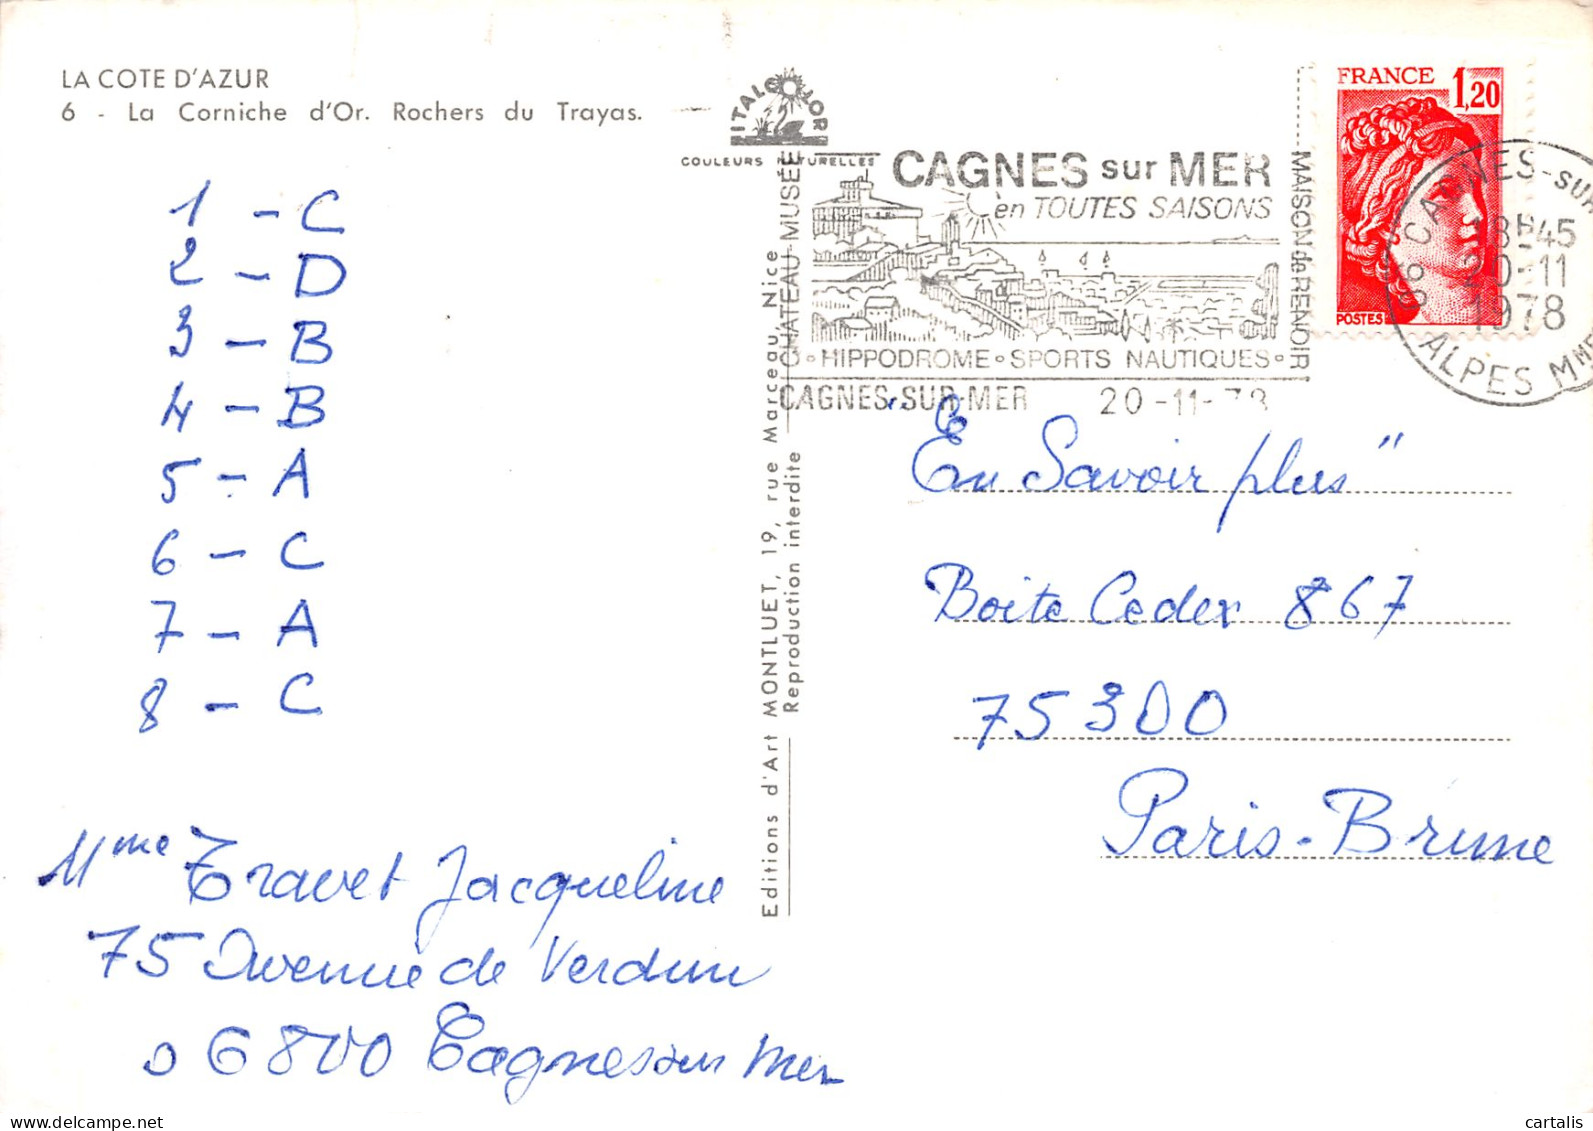 LA COTE D'AZUR
6 - La Corniche d'Or. Rochers du Trayas.
1 - C
2 - D
3 - B
4 - B
5 - A
6 - C
7 - A
8 - C
Mme Travet Jacqueline
75 Avenue de Verdun
06800 Cagnes sur Mer
ITALCOLOR
COULEURS NATURELLES
Editions d'Art MONTLUET, 19, rue Marceau, Nice
Reproduction interdite
CHATEAU-MUSÉE
CAGNES sur MER
en TOUTES SAISONS
MAISON de RENOIR
HIPPODROME SPORTS NAUTIQUES
CAGNES-SUR-MER 20-11-78
FRANCE 1,20
POSTES
06 CAGNES-SUR
18H45
20-11
1978
ALPES MMES
"En Savoir plus"
Boite Cedex 867
75300
Paris-Brune
cartalis